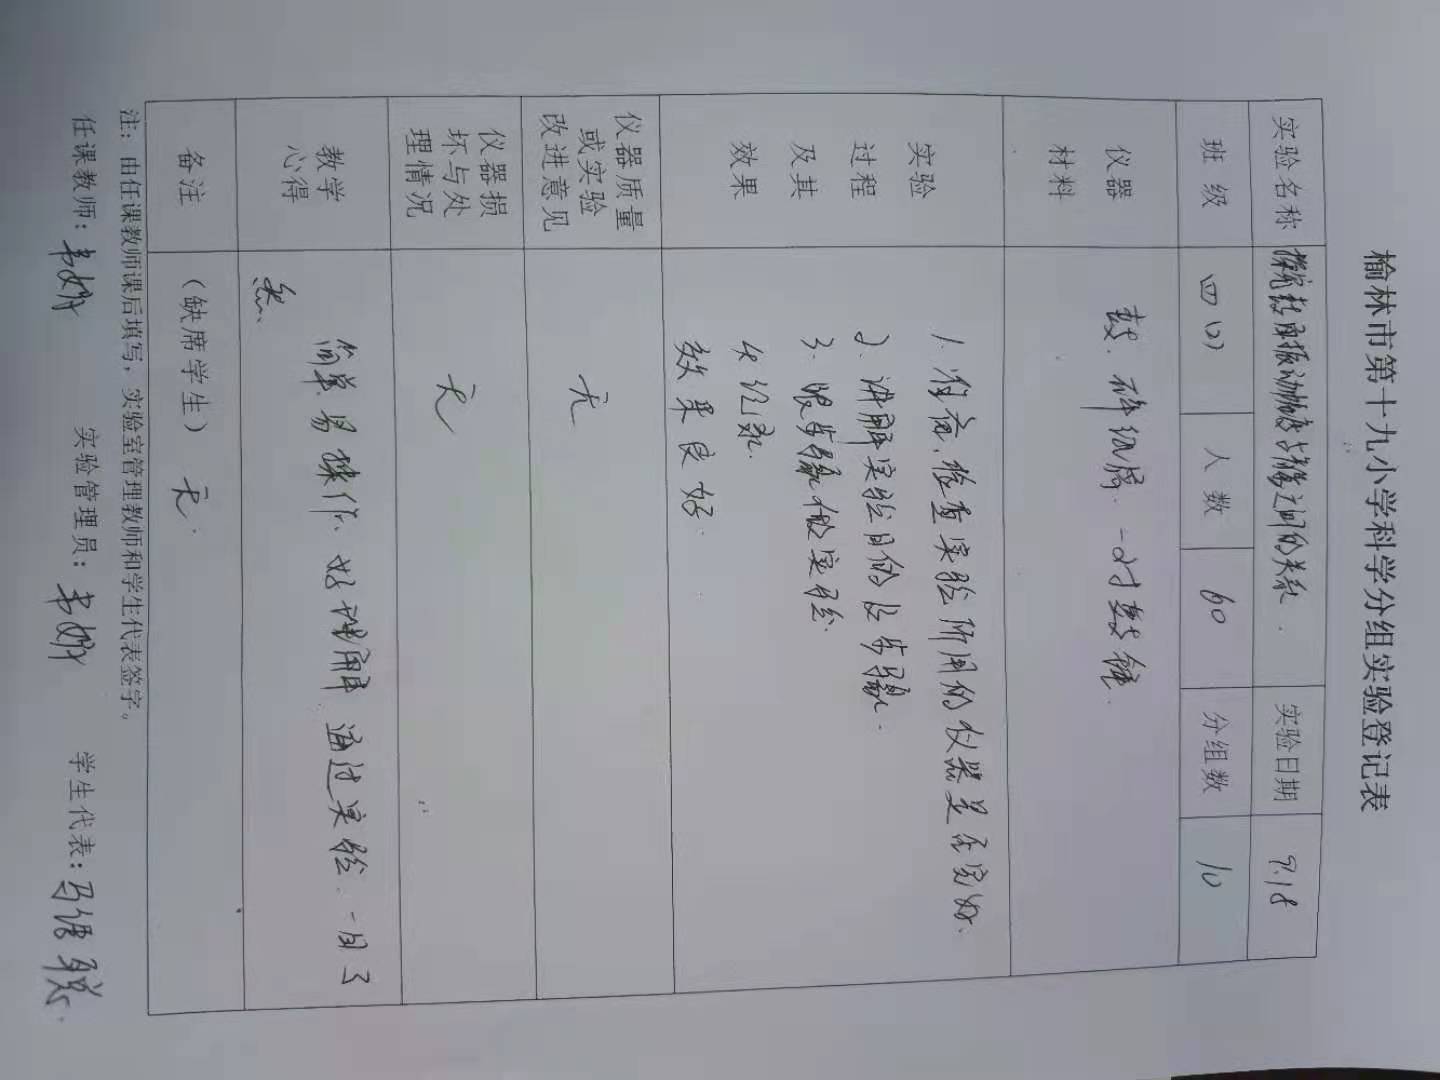 榆林市第十九小学科学分组实验登记表
实验名称 探究鼓面振动幅度与强弱之间的关系. 实验日期 9.18
班级 四(2) 人数 60 分组数 10
仪器
材料
鼓. 碎纸屑. 一对鼓锤
实验
过程
及其
效果
1. 准备, 检查实验所用的仪器是否完好.
2. 讲解实验目的及步骤.
3. 跟步骤做实验.
4 记录.
效果良好.
仪器质量
或实验
改进意见
无
仪器损
坏与处
理情况
无
教学
心得
简单易操作, 好理解 通过实验. 一目了
然.
备注 (缺席学生) 无.
注:由任课教师课后填写,实验室管理教师和学生代表签字。
任课教师: 实验管理员: 学生代表:马